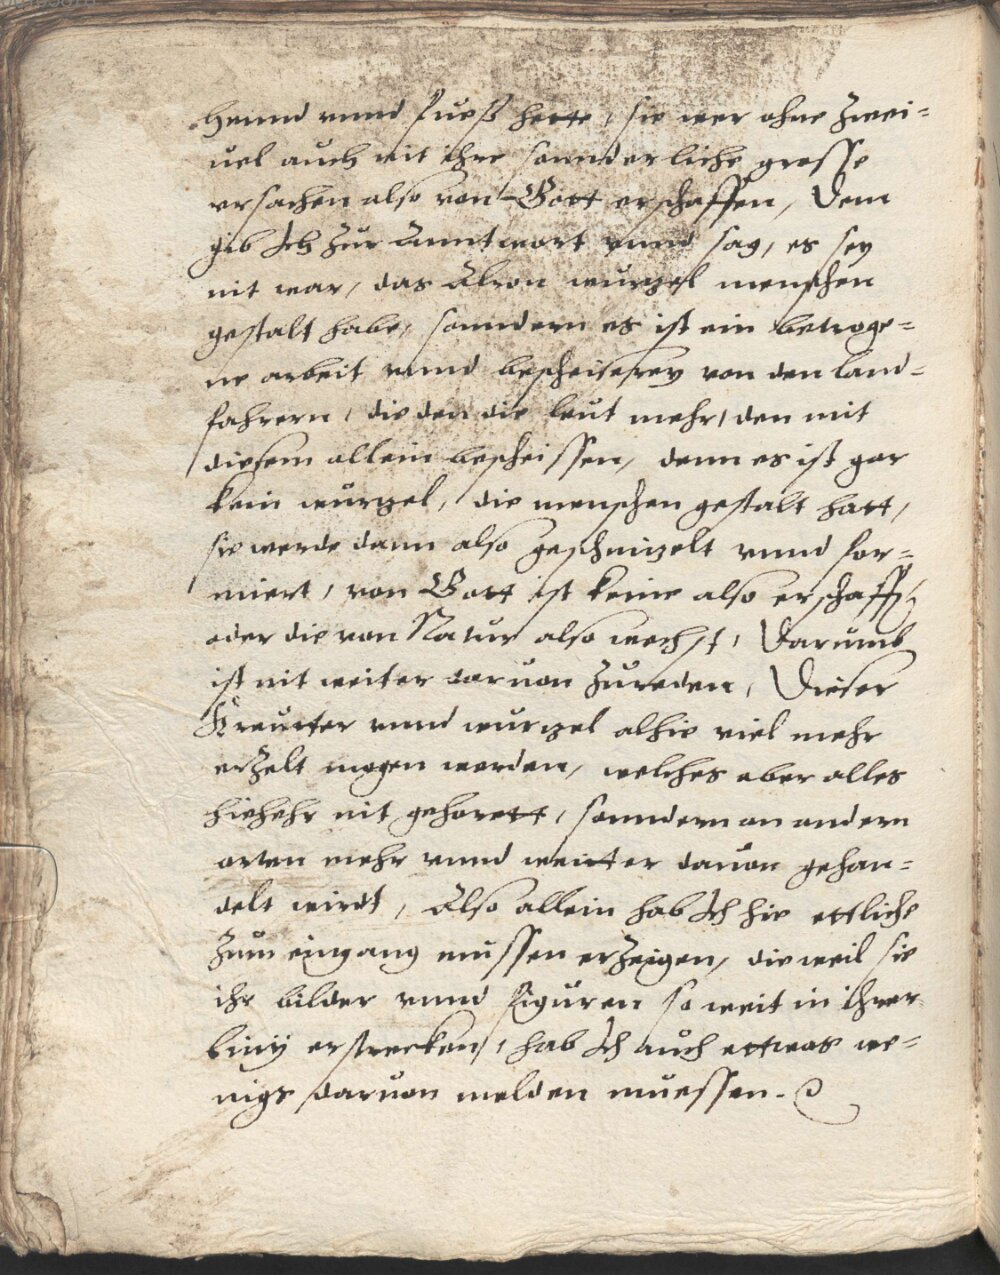 Hennd vnnd fueß hette, sie wer ohne Zwei=
uel auch nit ihre sonnderliche grosse
vrsachen also von Gott erschaffen, Dem
gib Ich zur Anntwort vnnd sag, es sey
nit war, das Alron wurzel menschen
gestalt habe, sonndern es ist ein betroge=
ne arbeit vnnd bescheiserey von den land=
fahrern, die den die leut mehr, den mit
diesem allein bescheissen, denn es ist gar
kein wurzel, die menschen gestalt hatt,
sie werde dann also geschnizelt vnnd for=
miert, von Gott ist keine also erschaffen
oder die von Natur also wechst, Darumb
ist nit weiter daruon zureden, Dieser
Kreutter vnnd wurzel alhie viel mehr
erzelt mogen werden, welches aber alles
hiehehr nit gehorett, sonndern an andern
orten mehr vnnd weitter dauon gehan=
delt wirdt, Also allein hab Ich hie ettliche
zum eingang mussen erzeigen, die weil sie
ihr bilder vnnd figuren so weit in ihrer
liny erstrecken, hab Ich auch ettwas we=
nigs daruon melden muessen.